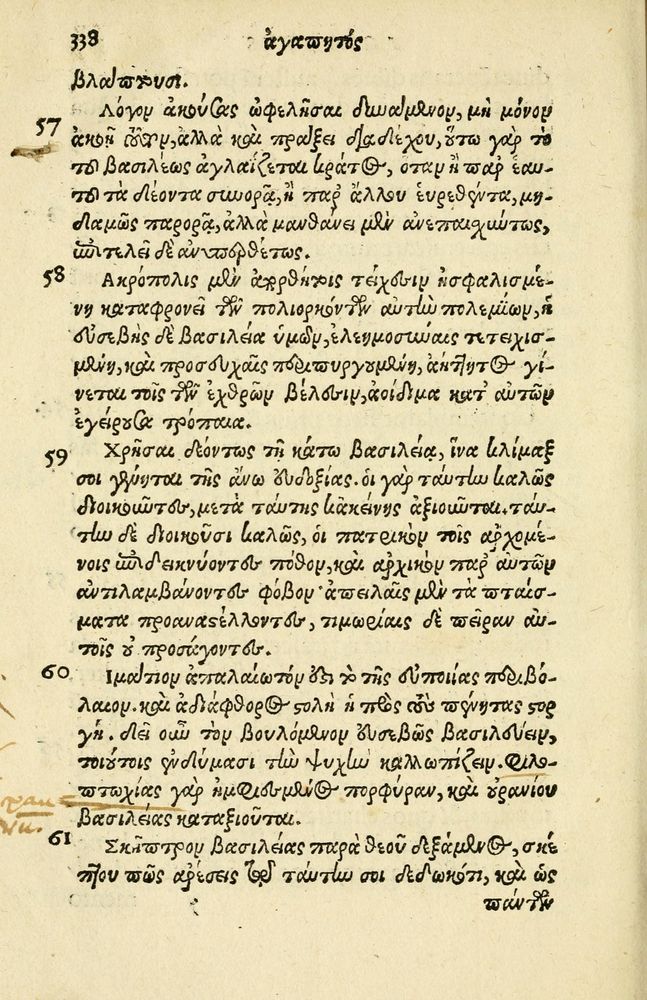 338 ἀγαπητός
βλάπτουσι.
57 Λόγον ἀκούσας ὠφελῆσαι δυνάμενον, μὴ μόνον
ἀκοῇ αὐτὸν, ἀλλὰ καὶ πράξει διαδέχου, οὕτω γὰρ τὸ
τοῦ βασιλέως ἀγλαΐζεται κράτος, ὅταν ἢ παρ' ἑαυ-
τοῦ τὰ δέοντα συνορᾷ, ἢ παρ' ἄλλου εὑρεθέντα, μη-
δαμῶς παρορᾷ, ἀλλὰ μανθάνει μὲν ἀνεπαισχύντως,
ἐπιτελεῖ δὲ ἀνυπερθέτως.
58 Ακρόπολις μὲν ἀρρήκτοις τείχεσιν ἠσφαλισμέ-
νη καταφρονεῖ τῶν πολιορκούντων αὐτὴν πολεμίων, ἡ
εὐσεβὴς δὲ βασιλεία ὑμῶν, ἐλεημοσύναις τετειχισ-
μένη, καὶ προσευχαῖς περιπυργουμένη, ἀήττητος γί-
νεται τοῖς τῶν ἐχθρῶν βέλεσιν, ἀοίδιμα κατ' αὐτῶν
ἐγείρουσα τρόπαια.
59 Χρῆσαι δεόντως τῇ κάτω βασιλείᾳ, ἵνα κλίμαξ
σοι γένηται τῆς ἄνω εὐδοξίας. οἱ γὰρ ταύτην καλῶς
διοικοῦντες, μετὰ ταύτης κἀκείνης ἀξιοῦνται. ταύ-
την δὲ διοικοῦσι καλῶς, οἱ πατρικὸν τοῖς ἀρχομέ-
νοις ἐπιδεικνύοντες πόθον, καὶ ἀρχικὸν παρ' αὐτῶν
ἀντιλαμβάνοντες φόβον· ἀπειλαῖς μὲν τὰ πταίσ-
ματα προαναστέλλοντες, τιμωρίαις δὲ πεῖραν αὐ-
τοῖς οὐ προσάγοντες.
60 Ιμάτιον ἀπαλαίωτόν ἐστι τὸ τῆς εὐποιίας περιβό-
λαιον. καὶ ἀδιάφθορος στολὴ ἡ πρὸς τοὺς πένητας στορ
γή. δεῖ οὖν τὸν βουλόμενον εὐσεβῶς βασιλεύειν,
τοιούτοις ἐνδύμασι τὴν ψυχὴν καλλωπίζειν. Φιλο-
πτωχίας γὰρ ἠμφιεσμένος πορφύραν, καὶ οὐρανίου
βασιλείας καταξιοῦται.
61 Σκῆπτρον βασιλείας παρὰ θεοῦ δεξάμενος, σκέ
πτου πῶς ἀρέσεις τῷ ταύτην σοι δεδωκότι, καὶ ὡς
πάντων